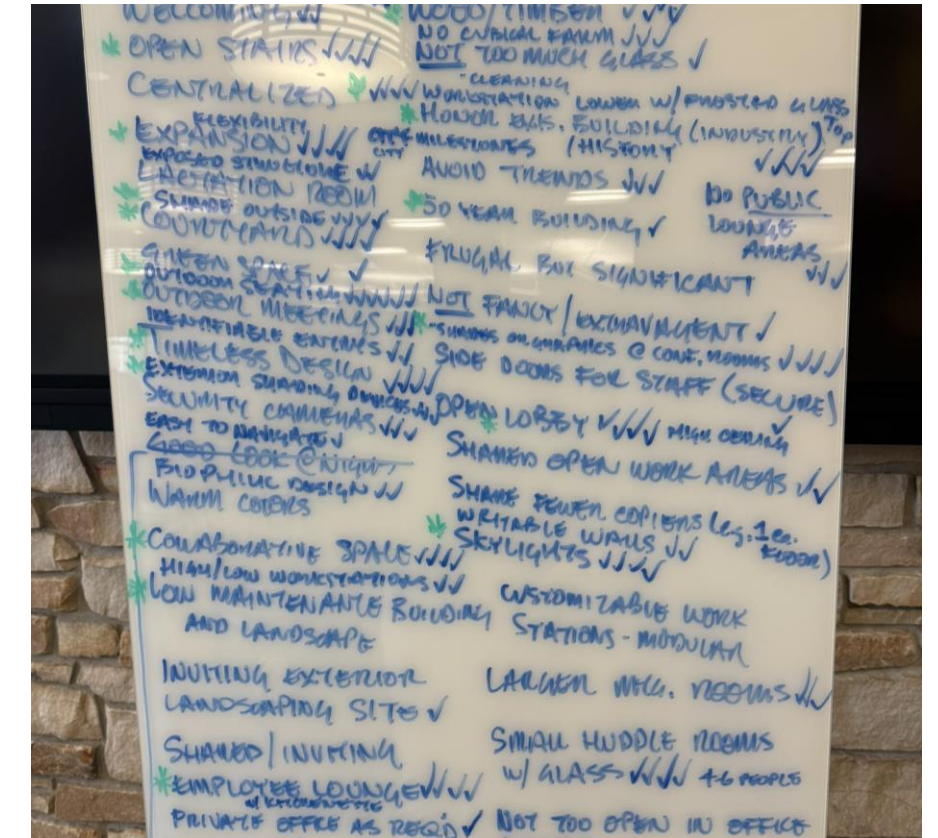 WELCOMING ✓✓
* OPEN STAIRS ✓✓✓✓
CENTRALIZED
FLEXIBILITY
* EXPANSION ✓✓✓✓
EXPOSED STRUCTURE ✓✓
LACTATION ROOM
* SHADE OUTSIDE ✓✓✓✓
* COURTYARD ✓✓✓✓
GREEN SPACE ✓ ✓
* OUTDOOR SEATING ✓✓✓✓✓✓
* OUTDOOR MEETINGS ✓✓✓
IDENTIFIABLE ENTRIES ✓✓
* TIMELESS DESIGN ✓✓✓✓
* EXTERIOR SHADING DEVICES
SECURITY CAMERAS ✓✓✓
EASY TO NAVIGATE ✓
GOOD LOOK @ NIGHT
BIOPHILIC DESIGN ✓✓
WARM COLORS
* COLLABORATIVE SPACE ✓✓✓✓
HIGH/LOW WORKSTATIONS ✓✓
* LOW MAINTENANCE BUILDING
AND LANDSCAPE
INVITING EXTERIOR
LANDSCAPING SITE ✓
SHARED/INVITING
* EMPLOYEE LOUNGE ✓✓✓✓
W/ KITCHENETTE
PRIVATE OFFICE AS REQ'D ✓
* WOOD/TIMBER ✓✓✓
NO CUBICAL FARM ✓✓✓
NOT TOO MUCH GLASS ✓
"CLEANING
* ✓✓✓✓ WORKSTATION LOWER W/ FROSTED GLASS TOP
* HONOR EXIS. BUILDING (INDUSTRY)
CITY MILESTONES /HISTORY ✓✓✓✓
AVOID TRENDS ✓✓✓
* 50 YEAR BUILDING ✓
NO PUBLIC
LOUNGE
AREAS
✓✓✓
FRUGAL BUT SIGNIFICANT
NOT FANCY/EXTRAVAGENT ✓
* "SHADES OR GRAPHICS @ CONF. ROOMS ✓✓✓✓
SIDE DOORS FOR STAFF (SECURE)
✓
* OPEN LOBBY ✓✓✓✓ HIGH CEILING
SHARED OPEN WORK AREAS ✓✓
SHARE FEWER COPIERS (eg. 1 ea. FLOOR)
WRITABLE WALLS ✓✓
* SKYLIGHTS ✓✓✓✓
CUSTOMIZABLE WORK
STATIONS - MODULAR
LARGER MTG. ROOMS ✓✓
SMALL HUDDLE ROOMS
W/ GLASS ✓✓✓✓ 4-6 PEOPLE
NOT TOO OPEN IN OFFICE